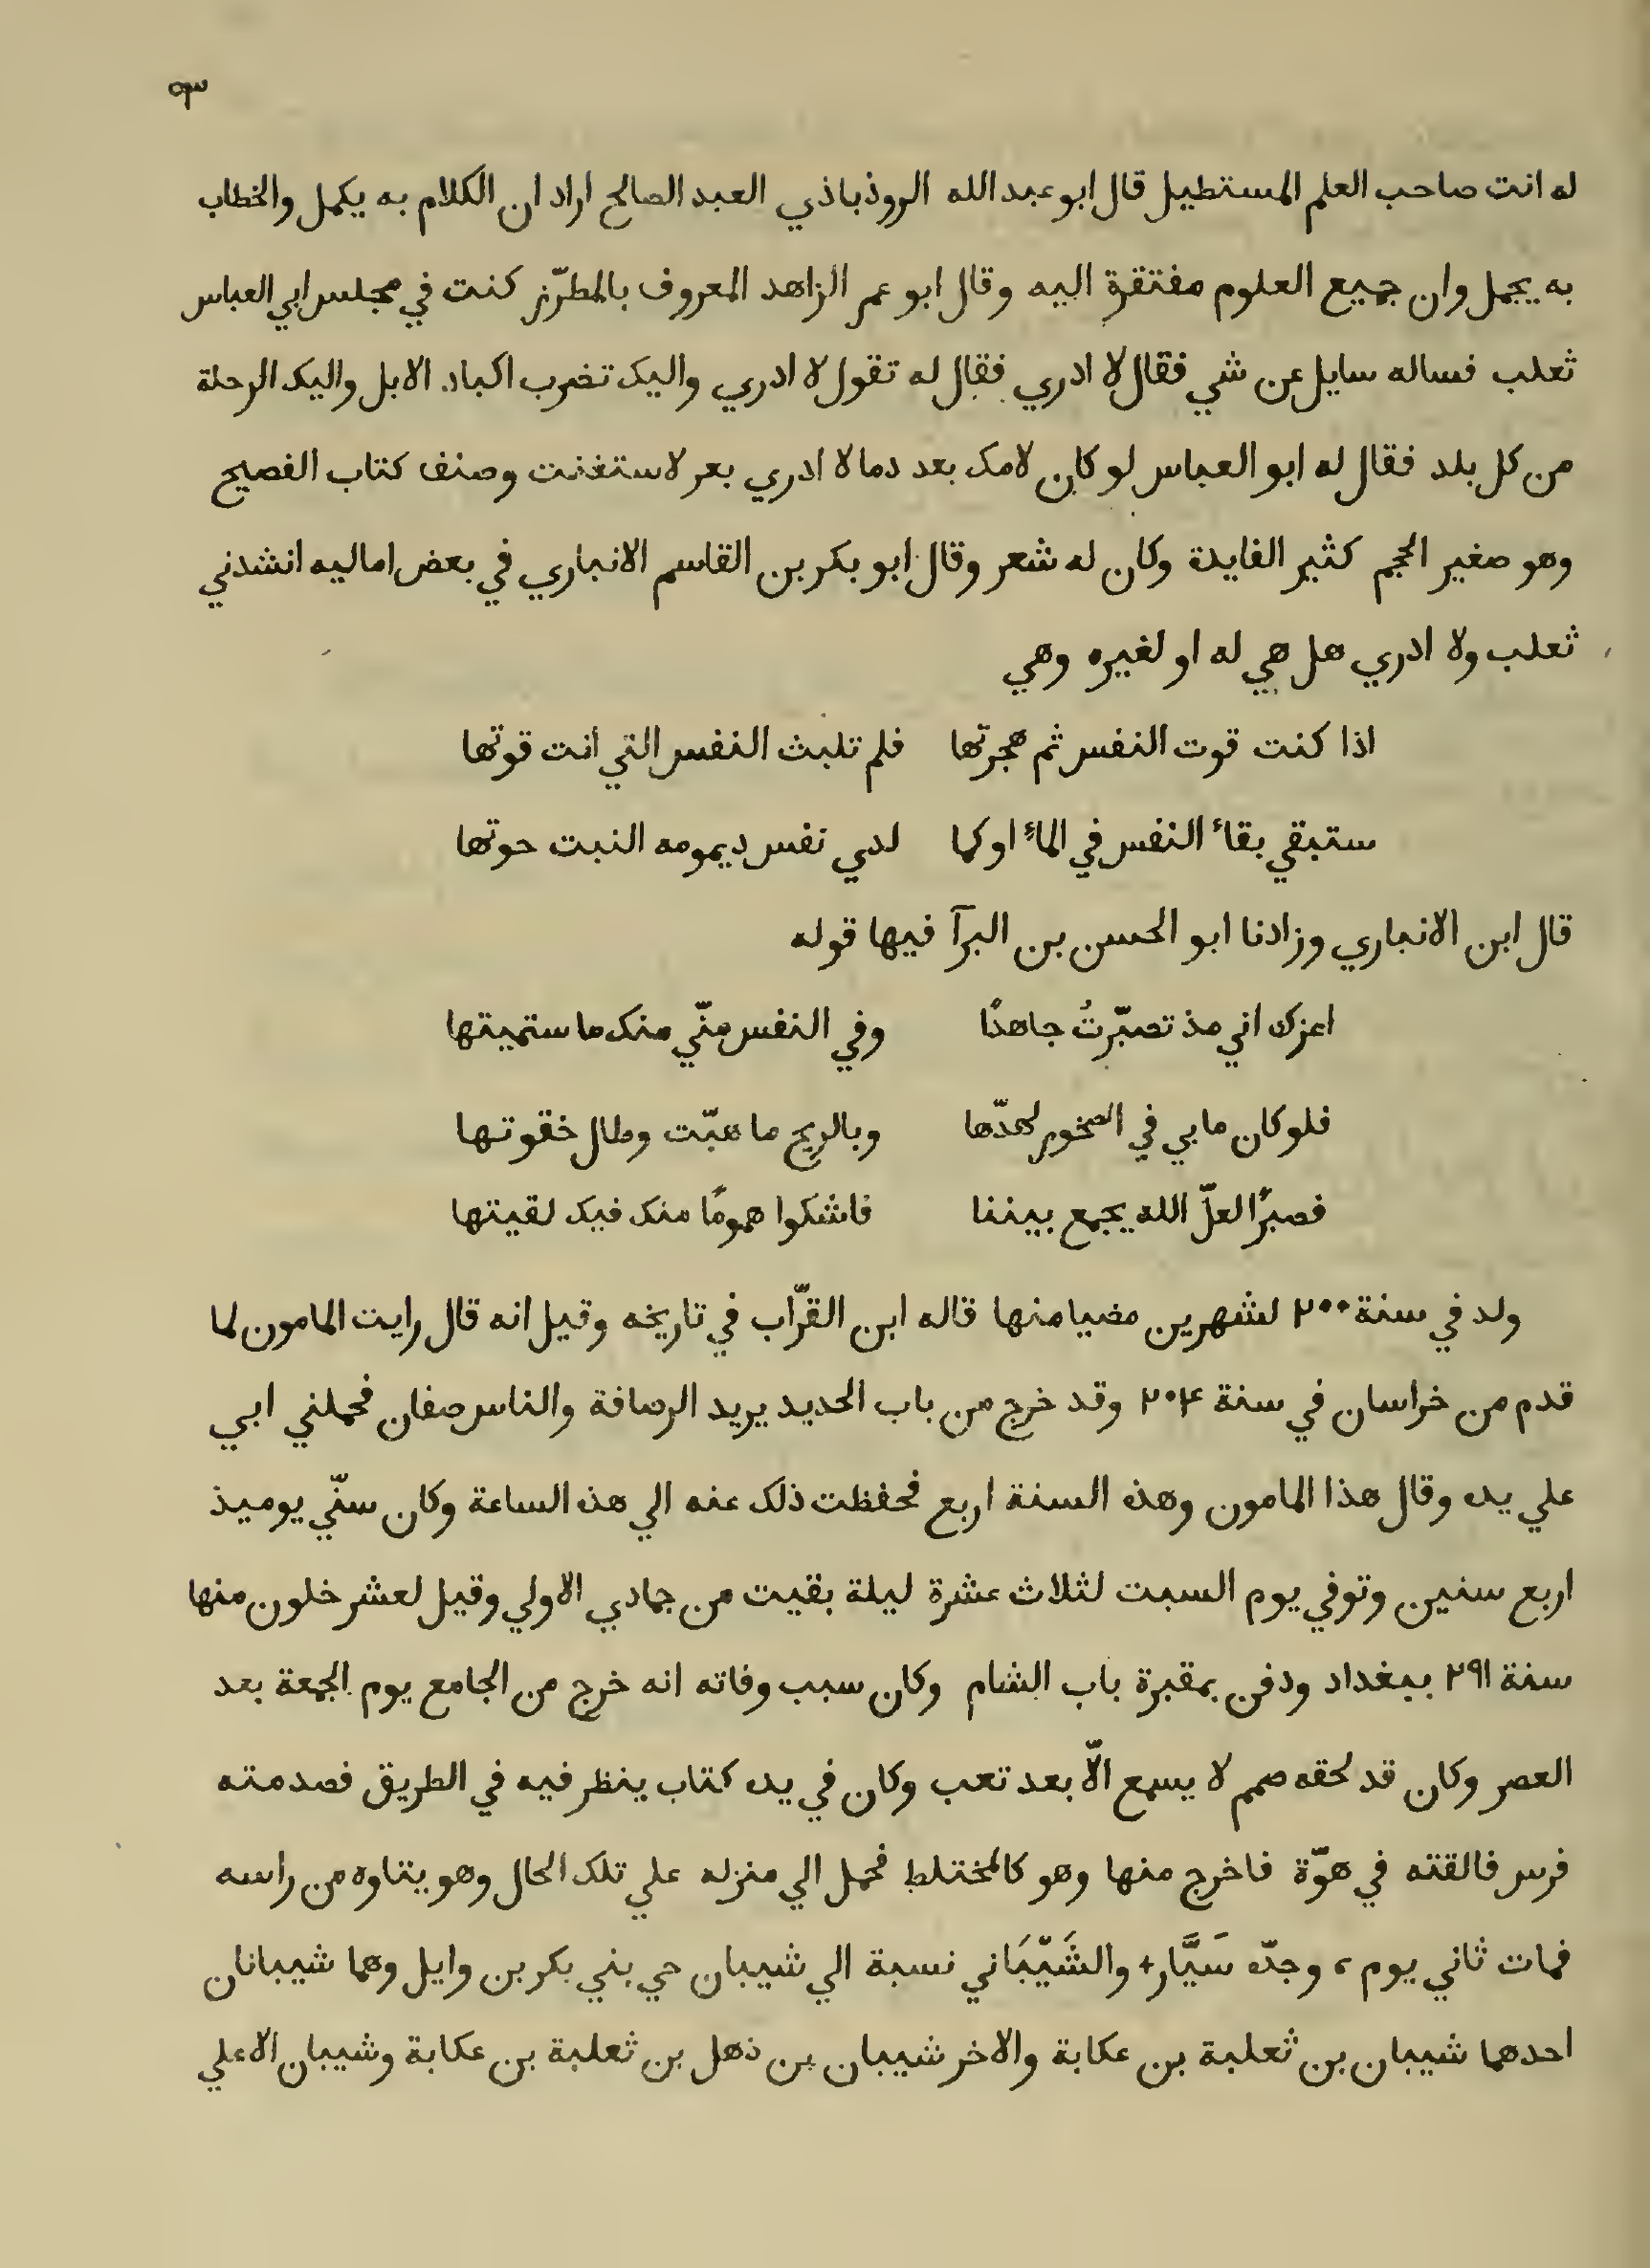 ٥٣
له انت صاحب العلم المستطيل قال ابو عبد الله الروذباذي العبد الصالح اراد ان الكلام به يكمل والخطاب
به يجمل وان جميع العلوم مفتقرة اليه وقال ابو عمر الزاهد المعروف بالمطرّز كنت في مجلس ابي العباس
ثعلب فساله سايل عن شي فقال لا ادري فقال له تقول لا ادري واليك تضرب اكباد الابل واليك الرحلة
من كل بلد فقال له ابو العباس لو كان لامك بعد دما لا ادري بعر لاستغنت وصنف كتاب الفصيح
وهو صغير الحجم كثير الفايدة وكان له شعر وقال ابو بكر بن القاسم الانباري في بعض اماليه انشدني
ثعلب ولا ادري هل هي له او لغيره وهي
اذا كنت قوت النفس ثم هجرتها فلم تلبث النفس التي انت قوتها
ستبقي بقاء النفس في الماء او كما لدي نفس ديمومه النبت حوتها
قال ابن الانباري وزادنا ابو الحسن بن البرآ فيها قوله
اعزك اني مذ تصبّرتُ جاهدًا وفي النفس منّي منك ما ستميتها
فلو كان ما بي في الصخور لهدّها وبالريح ما هبّت وطال خقوتها
فصبرًا لعلّ الله يجمع بيننا فاشكوا همومًا منك فيك لقيتها
ولد في سنة ٢٠٠ لشهرين مضيا منها قاله ابن القرّاب في تاريخه وقيل انه قال رايت المامون لما
قدم من خراسان في سنة ٢٠٤ وقد خرج من باب الحديد يريد الرصافة والناس صفان فحملني ابي
علي يده وقال هذا المامون وهذه السنة اربع فحفظت ذلك عنه الي هذه الساعة وكان سنّي يوميذ
اربع سنين وتوفي يوم السبت لثلاث عشرة ليلة بقيت من جمادي الاولي وقيل لعشر خلون منها
سنة ٢٩١ ببغداد ودفن بمقبرة باب الشام وكان سبب وفاته انه خرج من الجامع يوم الجمعة بعد
العصر وكان قد لحقه صمم لا يسمع الاّ بعد تعب وكان في يده كتاب ينظر فيه في الطريق فصدمته
فرس فالقته في هوّة فاخرج منها وهو كالمختلط فحمل الي منزله علي تلك الحال وهو يتاوه من راسه
فمات ثاني يوم، وجدّه سَيَّار+ والشَيّبَاني نسبة الي شيبان حي بني بكر بن وايل وهما شيبانان
احدهما شيبان بن ثعلبة بن عكابة والاخر شيبان بن ذهل بن ثعلبة بن عكابة وشيبان الاعلي